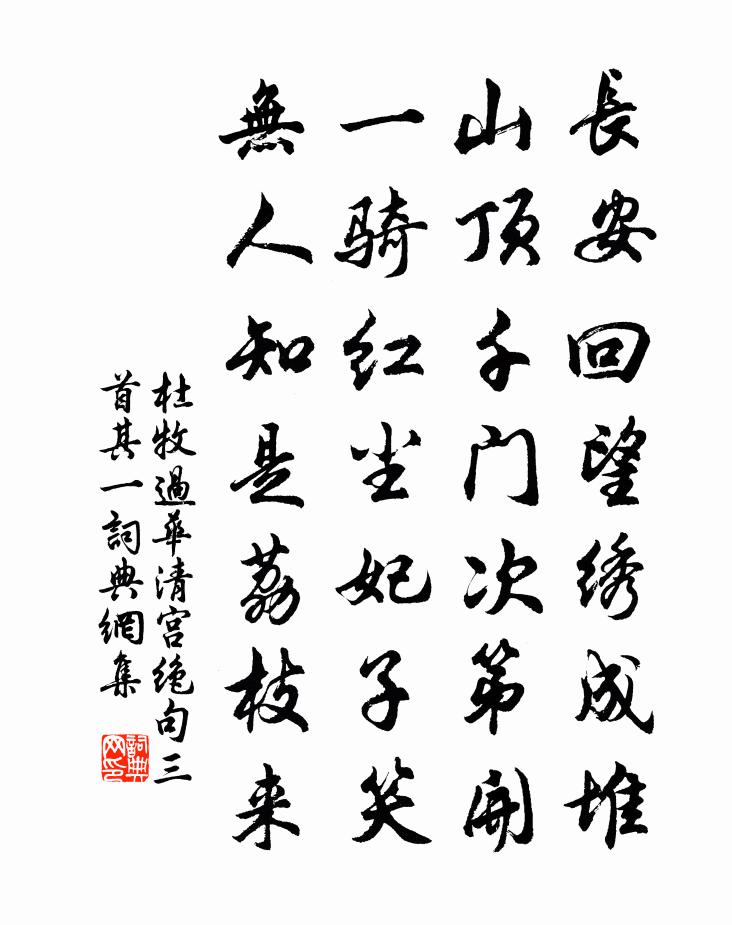 長安回望绣成堆
山顶千门次第開
一骑红尘妃子笑
無人知是荔枝来
杜牧過華清宫绝句三
首其一詞典網集
詞典网印